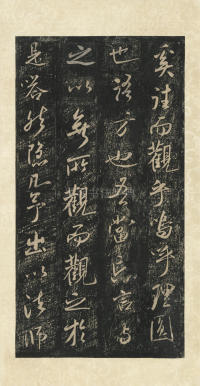 奚往而觀乎烏乎理圓
也語方也吾當忘言與
之以無所觀而觀之於
是荅然隱几予出以法師